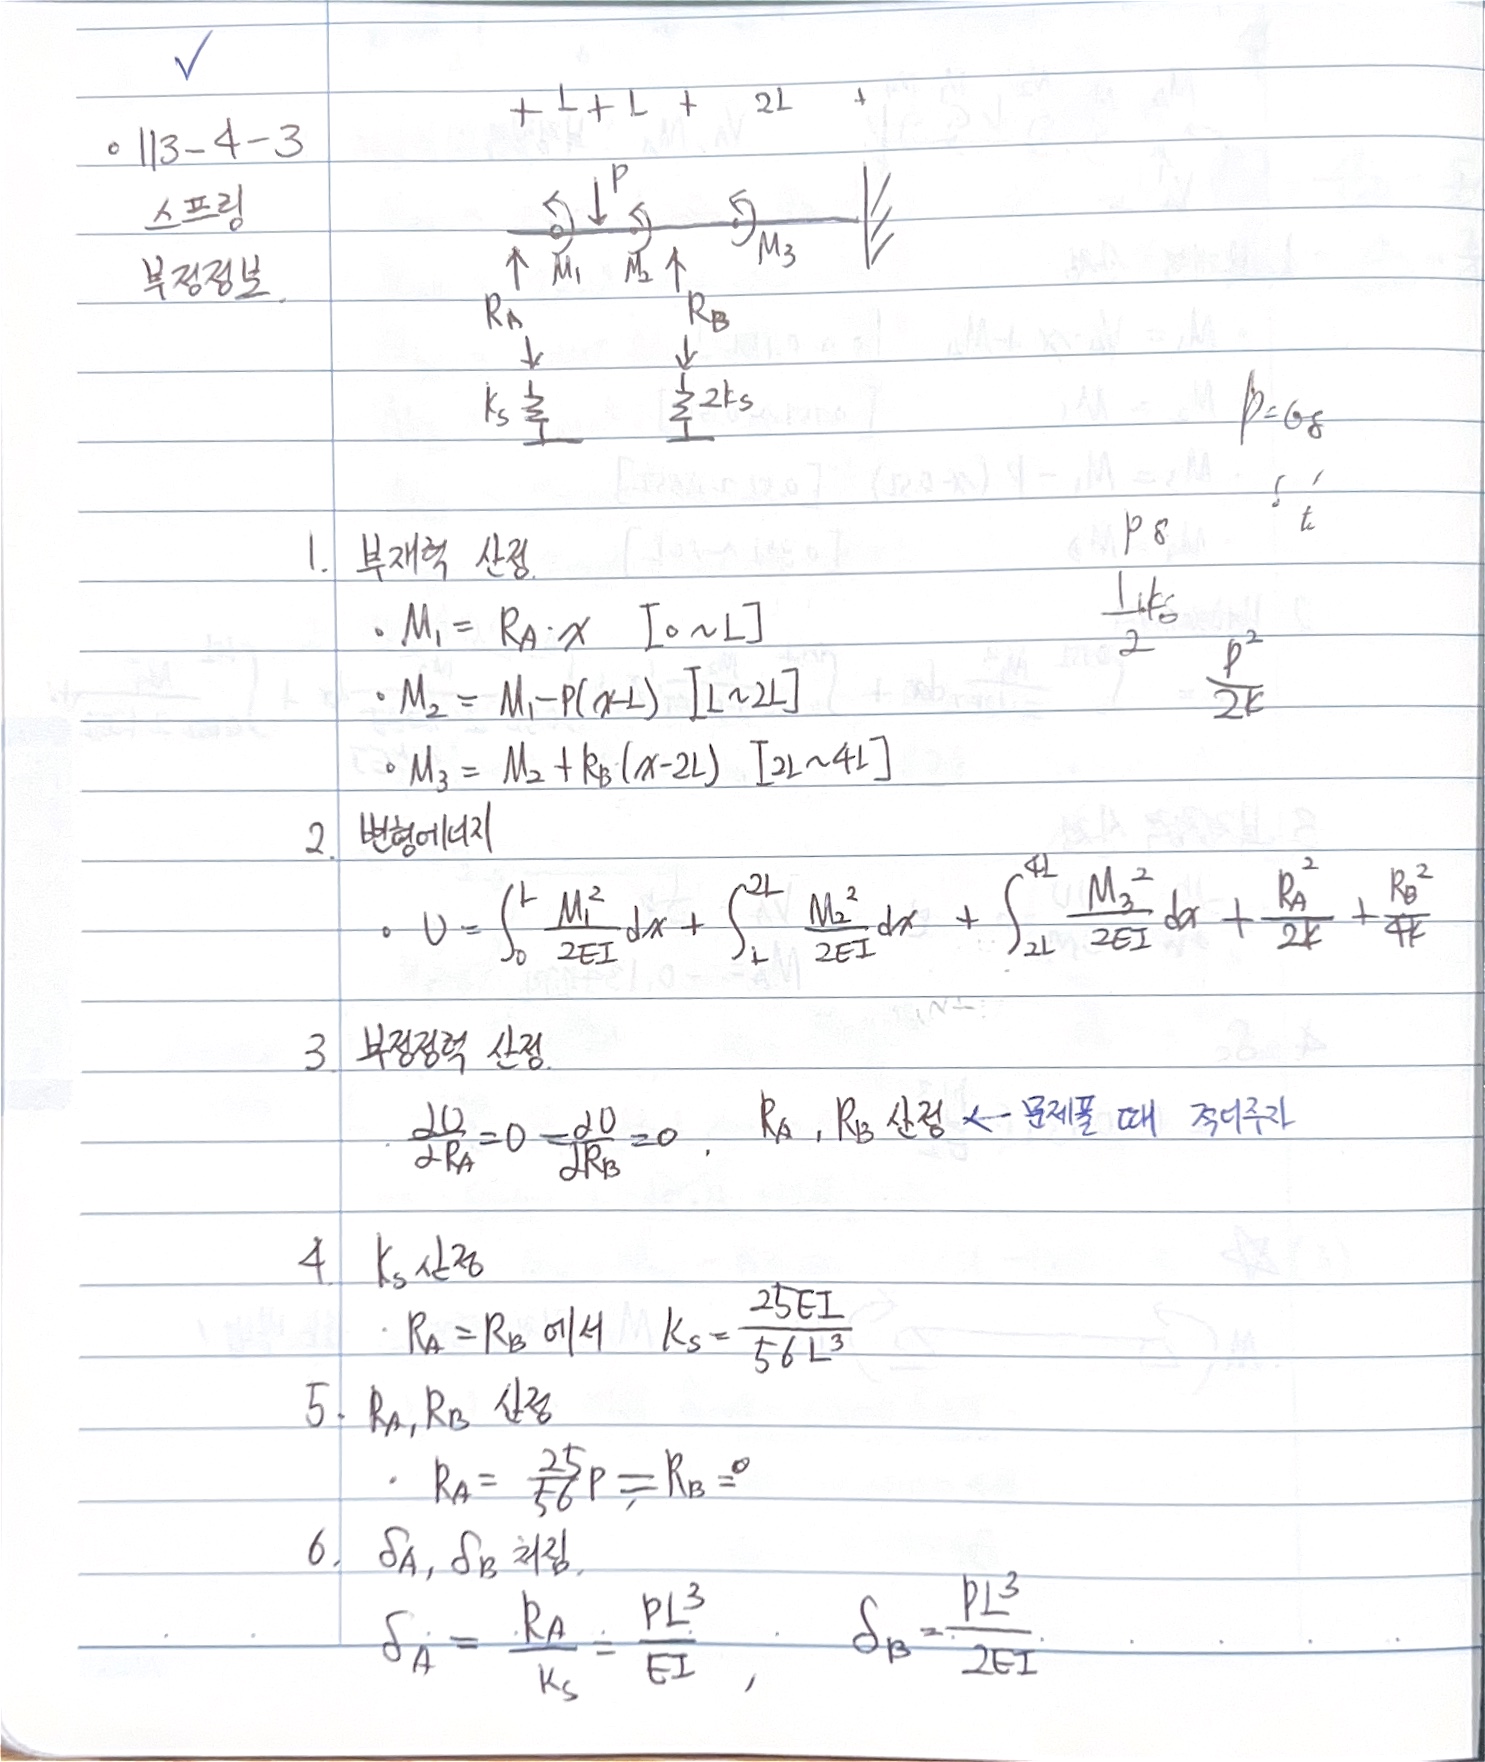 ✓
+ L + L + 2L +
∘ 113-4-3
스프링
부정정보.
P
M₁ M₂ M₃
R_A R_B
k_s 2k_s
1. 부재력 산정.
• M₁ = R_A·x [0~L]
• M₂ = M₁-P(x-L) [L~2L]
• M₃ = M₂+R_B·(x-2L) [2L~4L]
P δ
P²/2k
2. 변형에너지
• U = ∫₀^L M₁²/2EI dx + ∫_L^2L M₂²/2EI dx + ∫_2L^4L M₃²/2EI dx + R_A²/2k + R_B²/4k
3. 부정정력 산정.
∂U/∂R_A = 0 = ∂U/∂R_B = 0. R_A, R_B 산정 ← 문제풀 때 적어주자
4. k_s 산정
· R_A = R_B 에서 k_s = 25EI/56L³
5. R_A, R_B 산정
· R_A = 25/56 P = R_B =
6. δ_A, δ_B 처짐.
δ_A = R_A/k_s = PL³/EI , δ_B = PL³/2EI